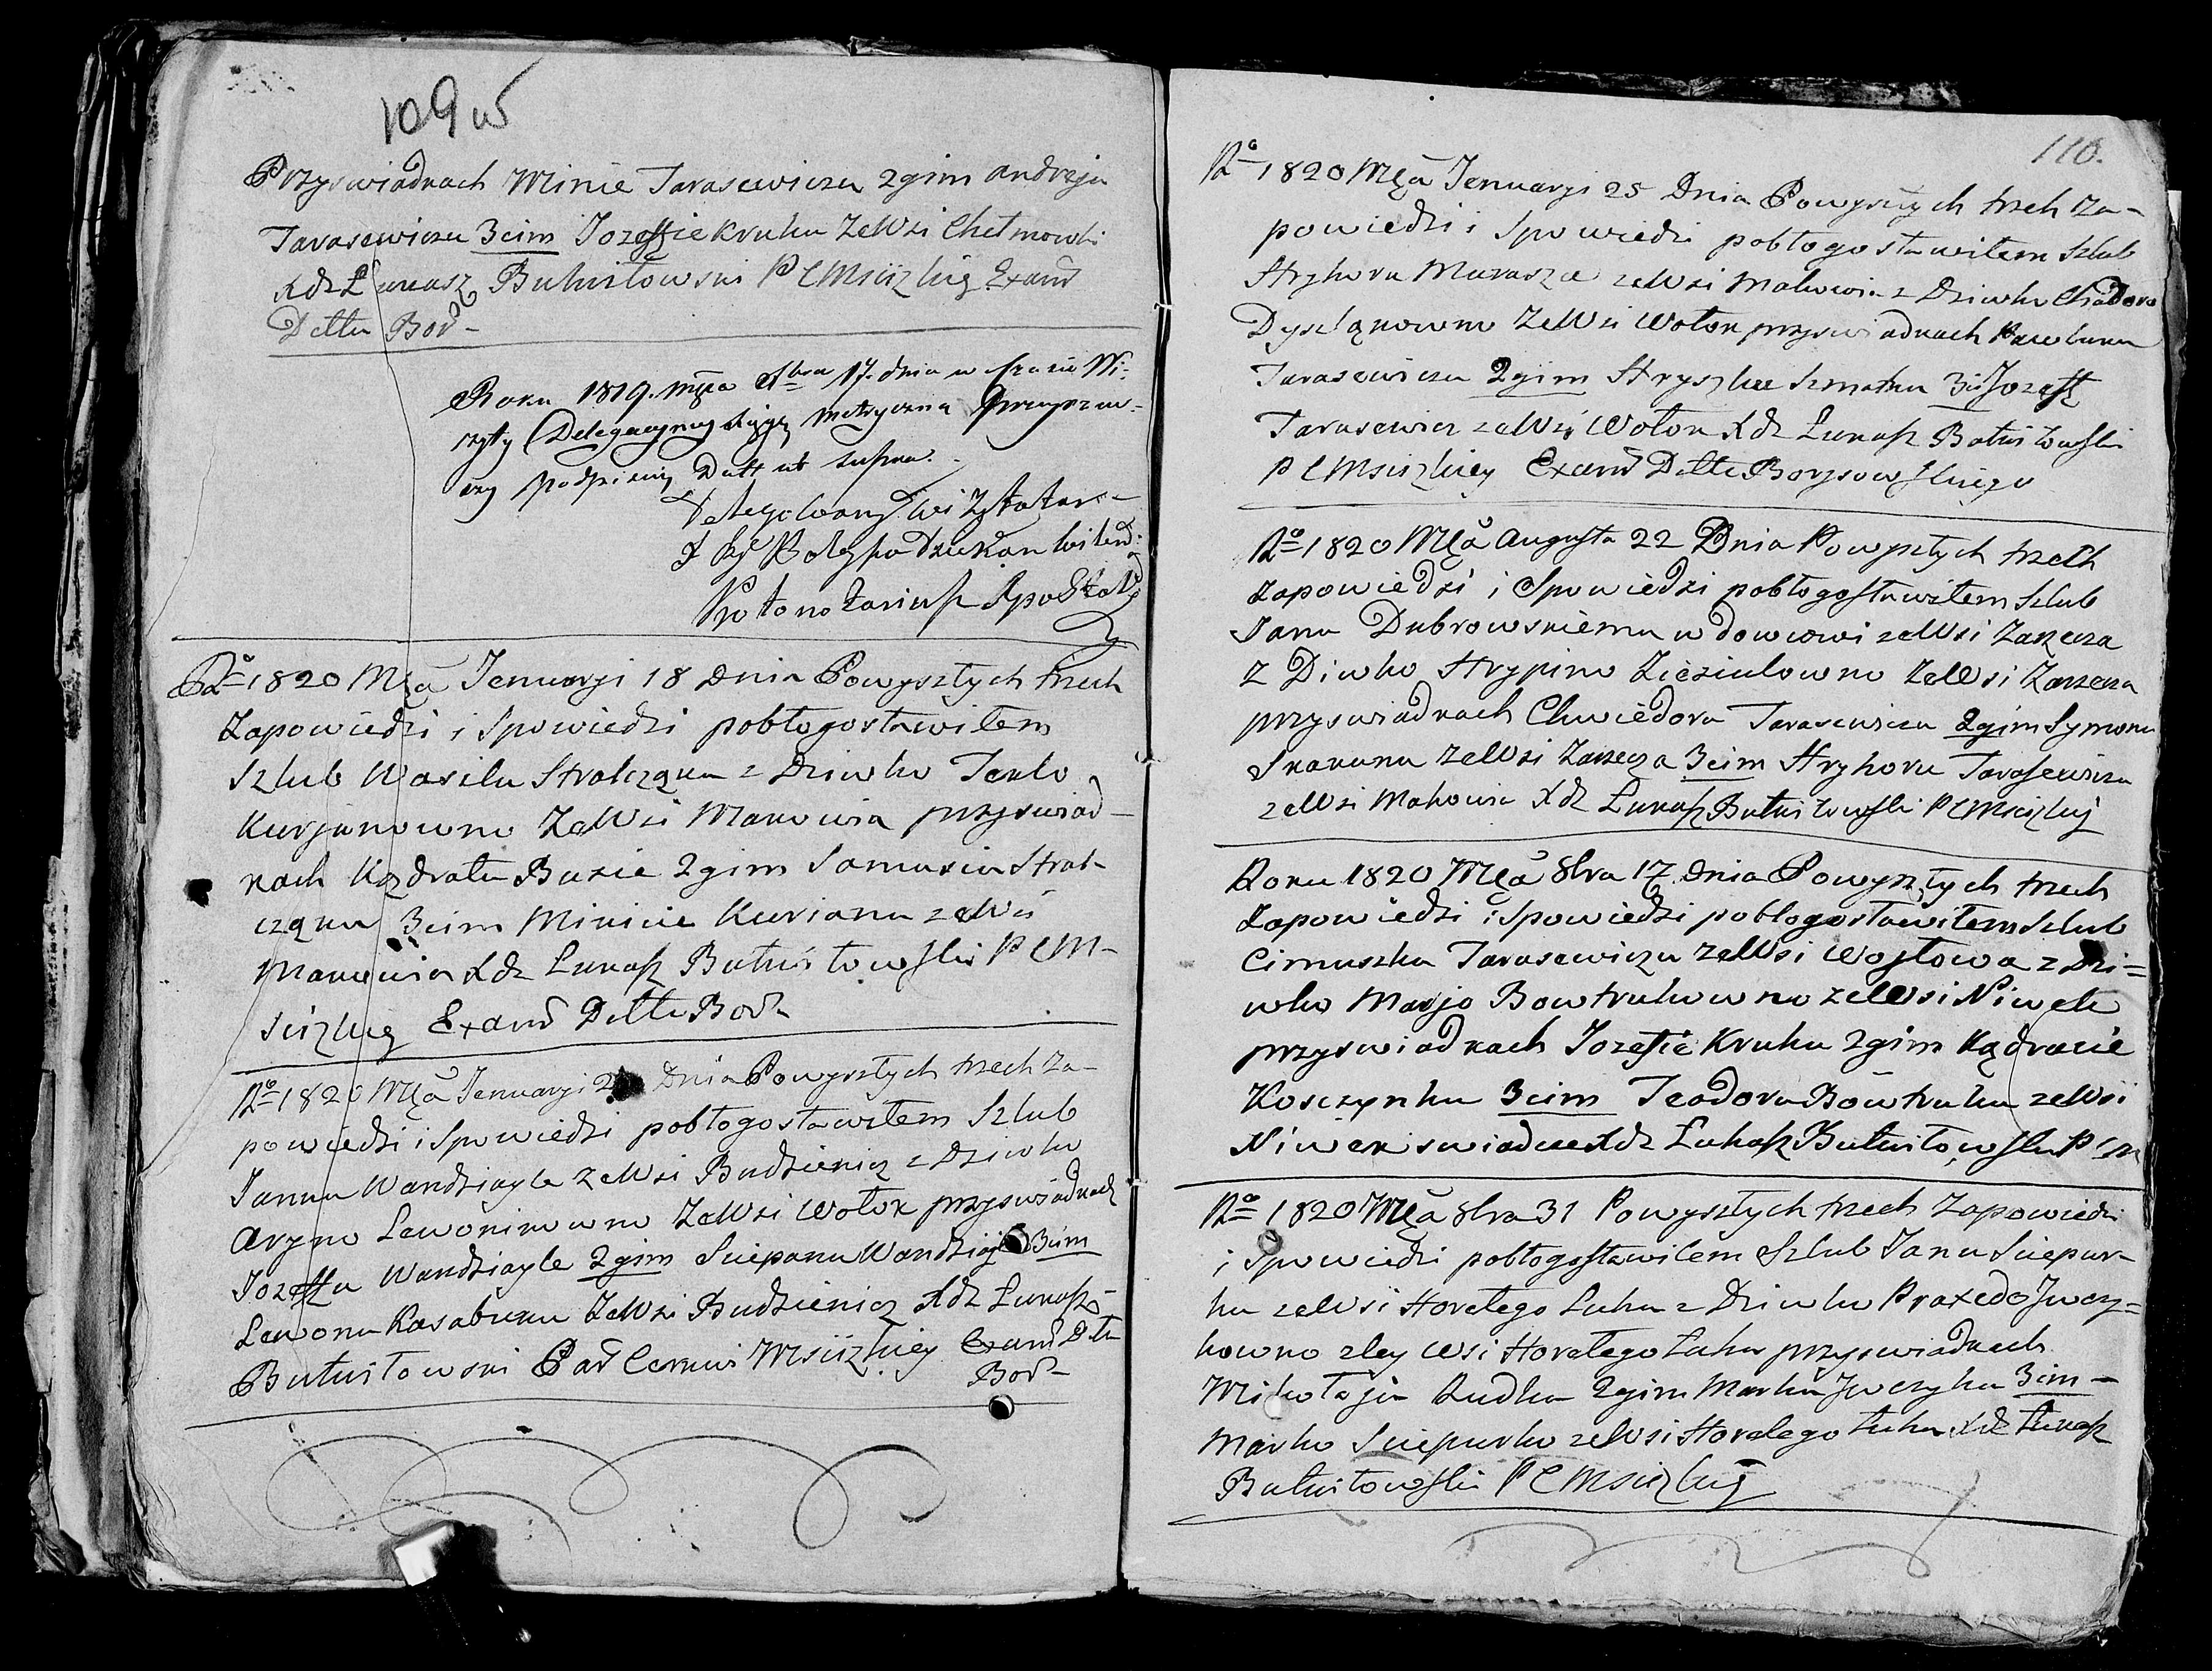 109 w
Przyswiadkach Minie Tarasewicza 2gim Andreja
Tarasewicza 3cim Jozefie Kruku ze Wsi Chelmowki
Xdz Łukasz Butwiłowski P C Msciżkiey Exam
Dettu Bor
Roku 1819. mca 17. dnia w czasie Wi-
zyty Delegacyiney Xięgę metryczną przeyrzaw-
szy podpisuię Datt ut supra.
Delegowany Wizytator
Protonotariusz Apostol
Ro 1820 Mca Jenuaryi 18 Dnia Powyszłych trzech
Zapowiedzi i Spowiedzi pobłogosławiłem
Szlub Wasilu Stralcząku z Dziwko Teklo
Kurjanowno Ze Wsi Makowia przyswiad-
kach Kądratu Buzie 2gim Samusiu Stral-
cząku 3cim Mikicie Kurianu ze Wsi
Makowia Xdz Łukasz Butwiłowski P C M-
sciżkiey Exam Dettu Bor
Ro 1820 Mca Jenuaryi Dnia Powyszłych trzech Za-
powiedzi i Spowiedzi pobłogosławiłem Szlub
Janu Wandziagle ze Wsi Budzienicz z Dziwko
Aryno Lewonikowno Ze Wsi Wołok przyswiadkach
Jozefu Wandziagle 2gim Sciepanu Wandziagle 3cim
Lewonu Kasabuku Ze Wsi Budzienicz Xdz Łukasz
Butwiłowski Par Cerkwi Msciżkiey Exam Dettu
Bor
110.
Ro 1820 Mca Jenuaryi 25 Dnia Powyszłych trzech Za-
powiedzi i Spowiedzi pobłogosławiłem Szlub
Hryhoru Muraszce ze Wsi Makowia z Dziwko Chadoro
Dyszląkowno Ze Wsi Wołok przyswiadkach Pawluku
Tarasewiczu 2gim Hryszku Szmatku 3ci Jozeff
Tarasewicz ze Wsi Wołok Xdz Łukasz Butwiłowski
P C Msciżkiey Exam Dettu Borysowskiego
Ro 1820 Mca Augusta 22 Dnia Powyszłych trzech
Zapowiedzi i Spowiedzi pobłogosławiłem Szlub
Janu Dubrowskiemu wdowcowi ze Wsi Zarzecza
z Diwko Hrypino Zieziulowno Ze Wsi Zarzecza
przyswiadkach Chwiedora Tarasewicza 2gim Symonu
Skakunu Ze Wsi Zarzecza 3cim Hryhoru Tarasewiczu
ze Wsi Makowia Xdz Łukasz Butwiłowski P C Msciżkiey
Roku 1820 Mca 8bra 17. Dnia Powyszłych trzech
Zapowiedzi i Spowiedzi pobłogosławiłem Szlub
Cimuszku Tarasewiczu ze Wsi Wojtowa z Dzi=
wko Marjo Bowtrukowno ze Wsi Niwek
przyswiadkach Jozefie Kruku 2gim Kądracie
Kosczynku 3cim Teodoru Bowtruku ze Wsi
Niwek swiadcze Xdz Łukasz Butwiłowski P C M
Ro 1820 Mca 8bra 31 Powyszłych trzech Zapowiedzi
i Spowiedzi pobłogosławiłem Szlub Janu Sciepur-
ku ze Wsi Horełego Łuhu z Dziwko Praxedo Jwczy=
kowno z tey Wsi Horełego Łuhu przyswiadkach
Mikołaju Rudku 2gim Marku Jwczyku 3cim
Marko Sciepurko ze Wsi Horelego Łuhu Xdz Łukasz
Butwiłowski P C Msciżkiey